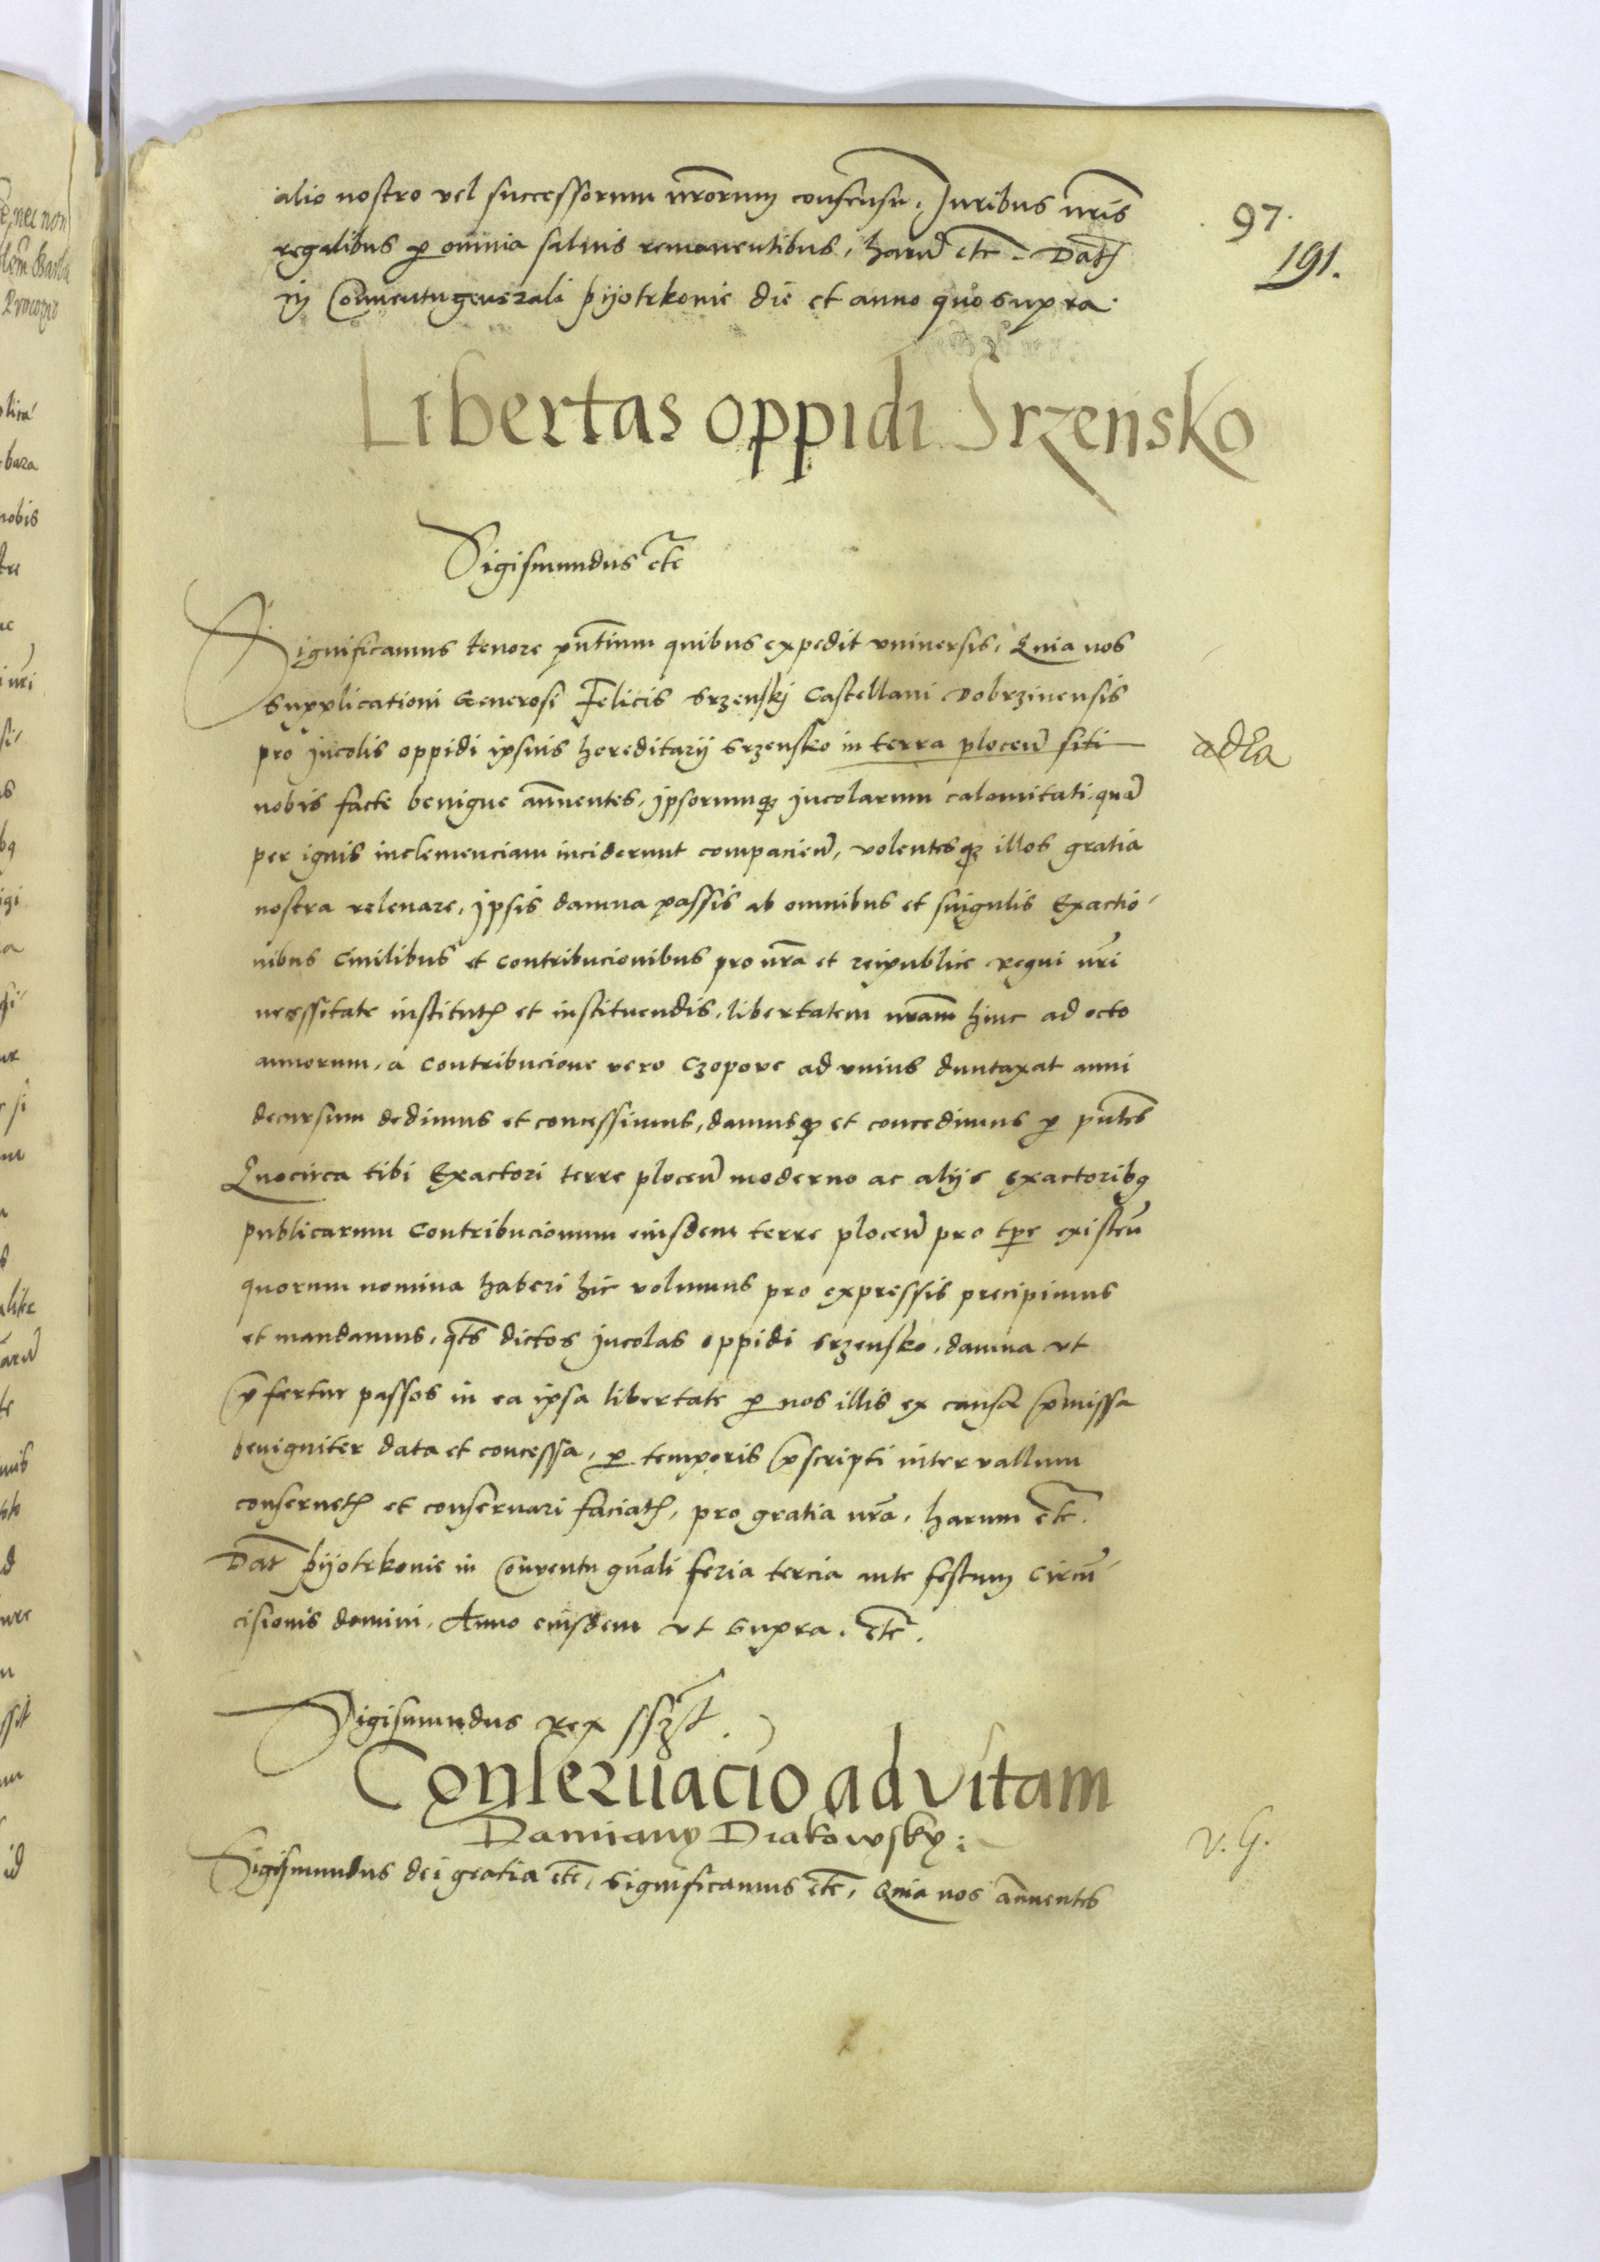 alio nostro vel successorum nrorum consensu. Juribus nris
regalibus p omnia saluis remanentibus, haru etc. Dat
in Conuentu generali pijotrkouie die et anno quo supra.
97.
191.
Libertas oppidi Srzensko
Sigismundus etc
Significamus tenore pntium quibus expedit vniuersis, Quia nos
supplicationi Generosi Felicis Srzenskj Castellani Dobrzinensis
pro incolis oppidi ipsius hereditarij Srzensko in terra plocen siti
nobis facte benigne annuentes, ipsorumq incolarum calamitati, qua
per ignis inclemenciam inciderunt compacien, volentesq illos gratia
nostra releuare, ipsis damna passis ab omnibus et singulis Exactio-
nibus Ciuilibus et contribucionibus pro nra et reipublice regni nri
necessitate institut et instituendis, libertatem nram hinc ad octo
annorum, a contribucione vero Czopowe ad vnius duntaxat anni
decursum dedimus et concessimus, damusq et concedimus p pntes
Quocirca tibi Exactori terre plocen moderno ac alijs exactorib9
publicarum contribucionum eiusdem terre plocen pro tpe existen
quorum nomina haberi hic volumus pro expressis precipimus
et mandamus, qts dictos incolas oppidi Srzensko, damna vt
pfertur passos in ea ipsa libertate p nos illis ex causa pmissa
benigniter data et concessa, p temporis pscripti interuallum
conseruet et conseruari faciat, pro gratia nra, harum etc.
Dat pijotrkouie in Conuentu gnali feria tercia ante festum Circu-
cisionis domini, Anno eiusdem vt supra. etc.
Sigismundus Rex sszt
Conseruacio ad vitam
Damiany Diakowsky:
V. G.
Sigismundus dei gratia etc, significamus etc, Quia nos annuentes